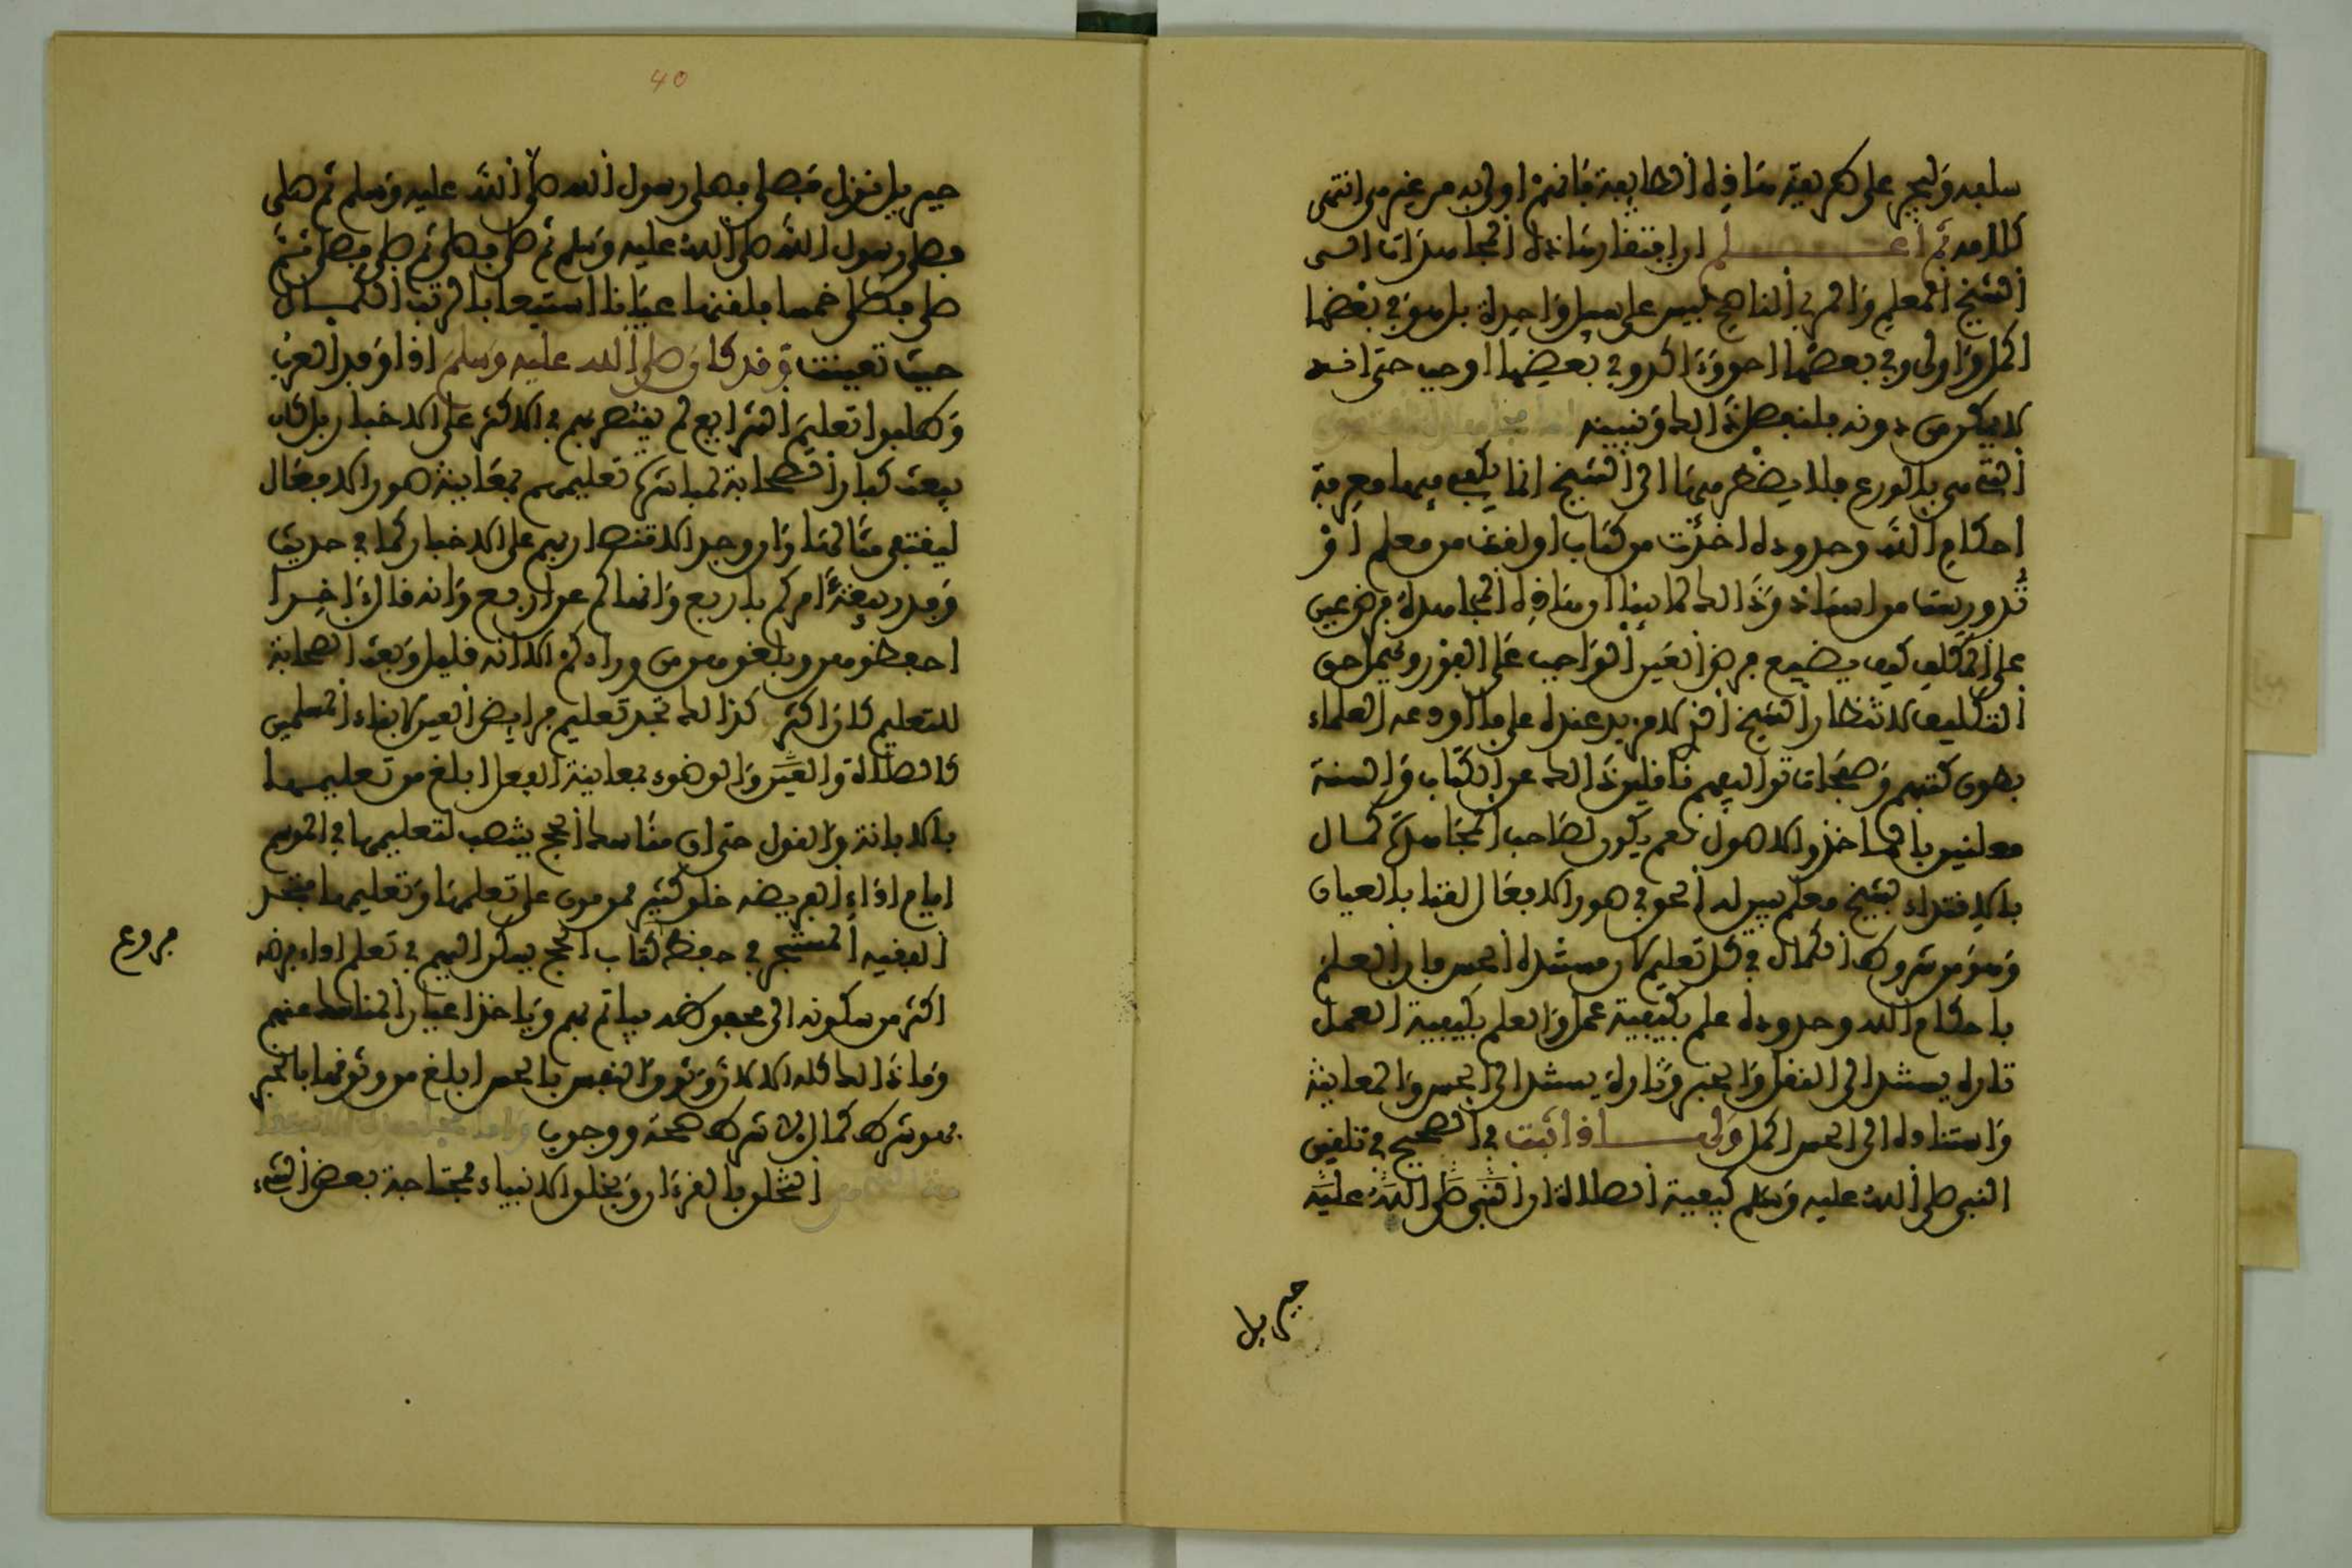 سلعه وليجر على طريقة هاذه الطايفة فإنهم اولى به من غيرهم انتمى
كلامه ثم اعلم ان افتقار هاذه المجاهدات الى
الشيخ المعلم والمربي الناصح ليس على سبيل واحدة بل هو في بعضها
اكمل واولى وفي بعضها احق وءاكد وفي بعضها اوجب حتى انه
لا يمكن من دونه فلنفصل ذالك ونبينه اما مجاهدة التقوى
التي هي بالورع فلا يضطر فيها الى الشيخ انما يكفي فيها معرفة
احكام الله وحدوده اخذت من كتاب او لقنت من معلم او
تدوريست من استاذ وذالك لما بينا ان هاذه المجاهدة فرض عين
على المكلف كيف يضيع فرض العين الواجب على الفور ويمر احق
التكليف لانتظار الشيخ اذ لا مزيد عنده على ما اودعه العلماء
بطون كتبهم وصفحات تواليفهم ناقلين ذالك عن الكتاب والسنة
معلنين بالماخذ والاصول نعم يكون لصاحب المجاهدة كمال
بالاقتداء بشيخ معلم يبين له انحو في صور الافعال الفتا بالعيان
وهو من شروط الكمال في كل تعليم كان مستنده الحس فان العلم
باحكام الله وحدوده علم بكيفية عمل والعلم بكيفية العمل
تارة يستند الى النقل والخبر وتارة يستند الى الحس والمعاينة
واستناده الى الحس اكمل ولهاذا ثبت في الصحيح في تلقين
النبي صلى الله عليه وسلم كيفية الصلاة ان النبي صلى الله عليه
جبريل
40
جبريل نزل فصلى فصلى رسول الله صلى الله عليه وسلم ثم صلى
فصلى رسول الله صلى الله عليه وسلم ثم صلى فصلى ثم صلى فصلى ثم
صلى فصلى خمسا فلقنها عيانا استيعابا لرتب الكمال
حيث تعينت وقد كان صلى الله عليه وسلم اذا اوفد العرب
وطلبوا تعليم الشرايع لم يقتصر بهم في الاكثر على الاخبار بل كان
يبعث كبار الصحابة لمباشرة تعليمهم بمعاينة صور الافعال
ليقتفي مثالها وان وجد الاقتصار بهم على الاخبار كما في حديث
وفد ربيعة امركم باربع وانهاكم عن اربع وانه قال ءاخرا
احفظوهن وبلغوهن من وراءكم الا انه قليل وبعث الصحابة
للتعليم كان اكثر كذالك تجد تعليم فرايض العين لابناء المسلمين
كالصلاة والغسل والوضوء بمعاينة الفعل ابلغ من تعليمها
بالابانة والقول حتى ان مناسك الحج ينتصب لتعليمها في الموسم
ايام اداء الفريضة خلق كثير ممن مرن على تعلمها وتعليمها فتجد
الفقيه المتبحر في حفظ كتاب الحج يسكن اليهم في تعلم اداء فرضه
فروع
اكثر من سكونه الى محفوظه فياتم بهم وياخذ اعيان المناسك عنهم
وما ذالك كله الا لان وثوق النفس بالحس ابلغ من وثوقها بالخبر
فهو شرط كمال لا شرط صحة ووجوب واما مجاهدة الاستقامة
التي هي التخلق بالقرءان وبخلق الانبياء فمحتاجة بعض الشيء